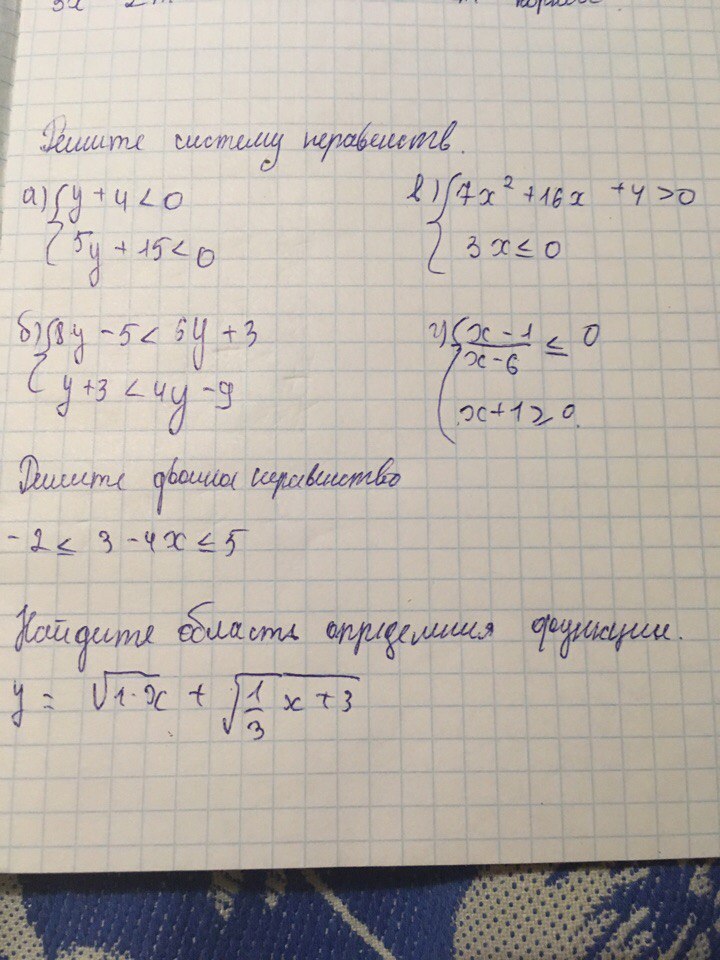 Решите систему неравенств.
а) { y + 4 < 0
5y + 15 < 0
в) { 7x² + 16x + 4 > 0
3x ≤ 0
б) { 8y - 5 < 6y + 3
y + 3 < 4y - 9
г) { (x - 1)/(x - 6) ≤ 0
x + 1 ≥ 0
Решите двойное неравенство
- 2 ≤ 3 - 4x ≤ 5
Найдите область определения функции.
y = √(1-x) + √(1/3 x + 3)